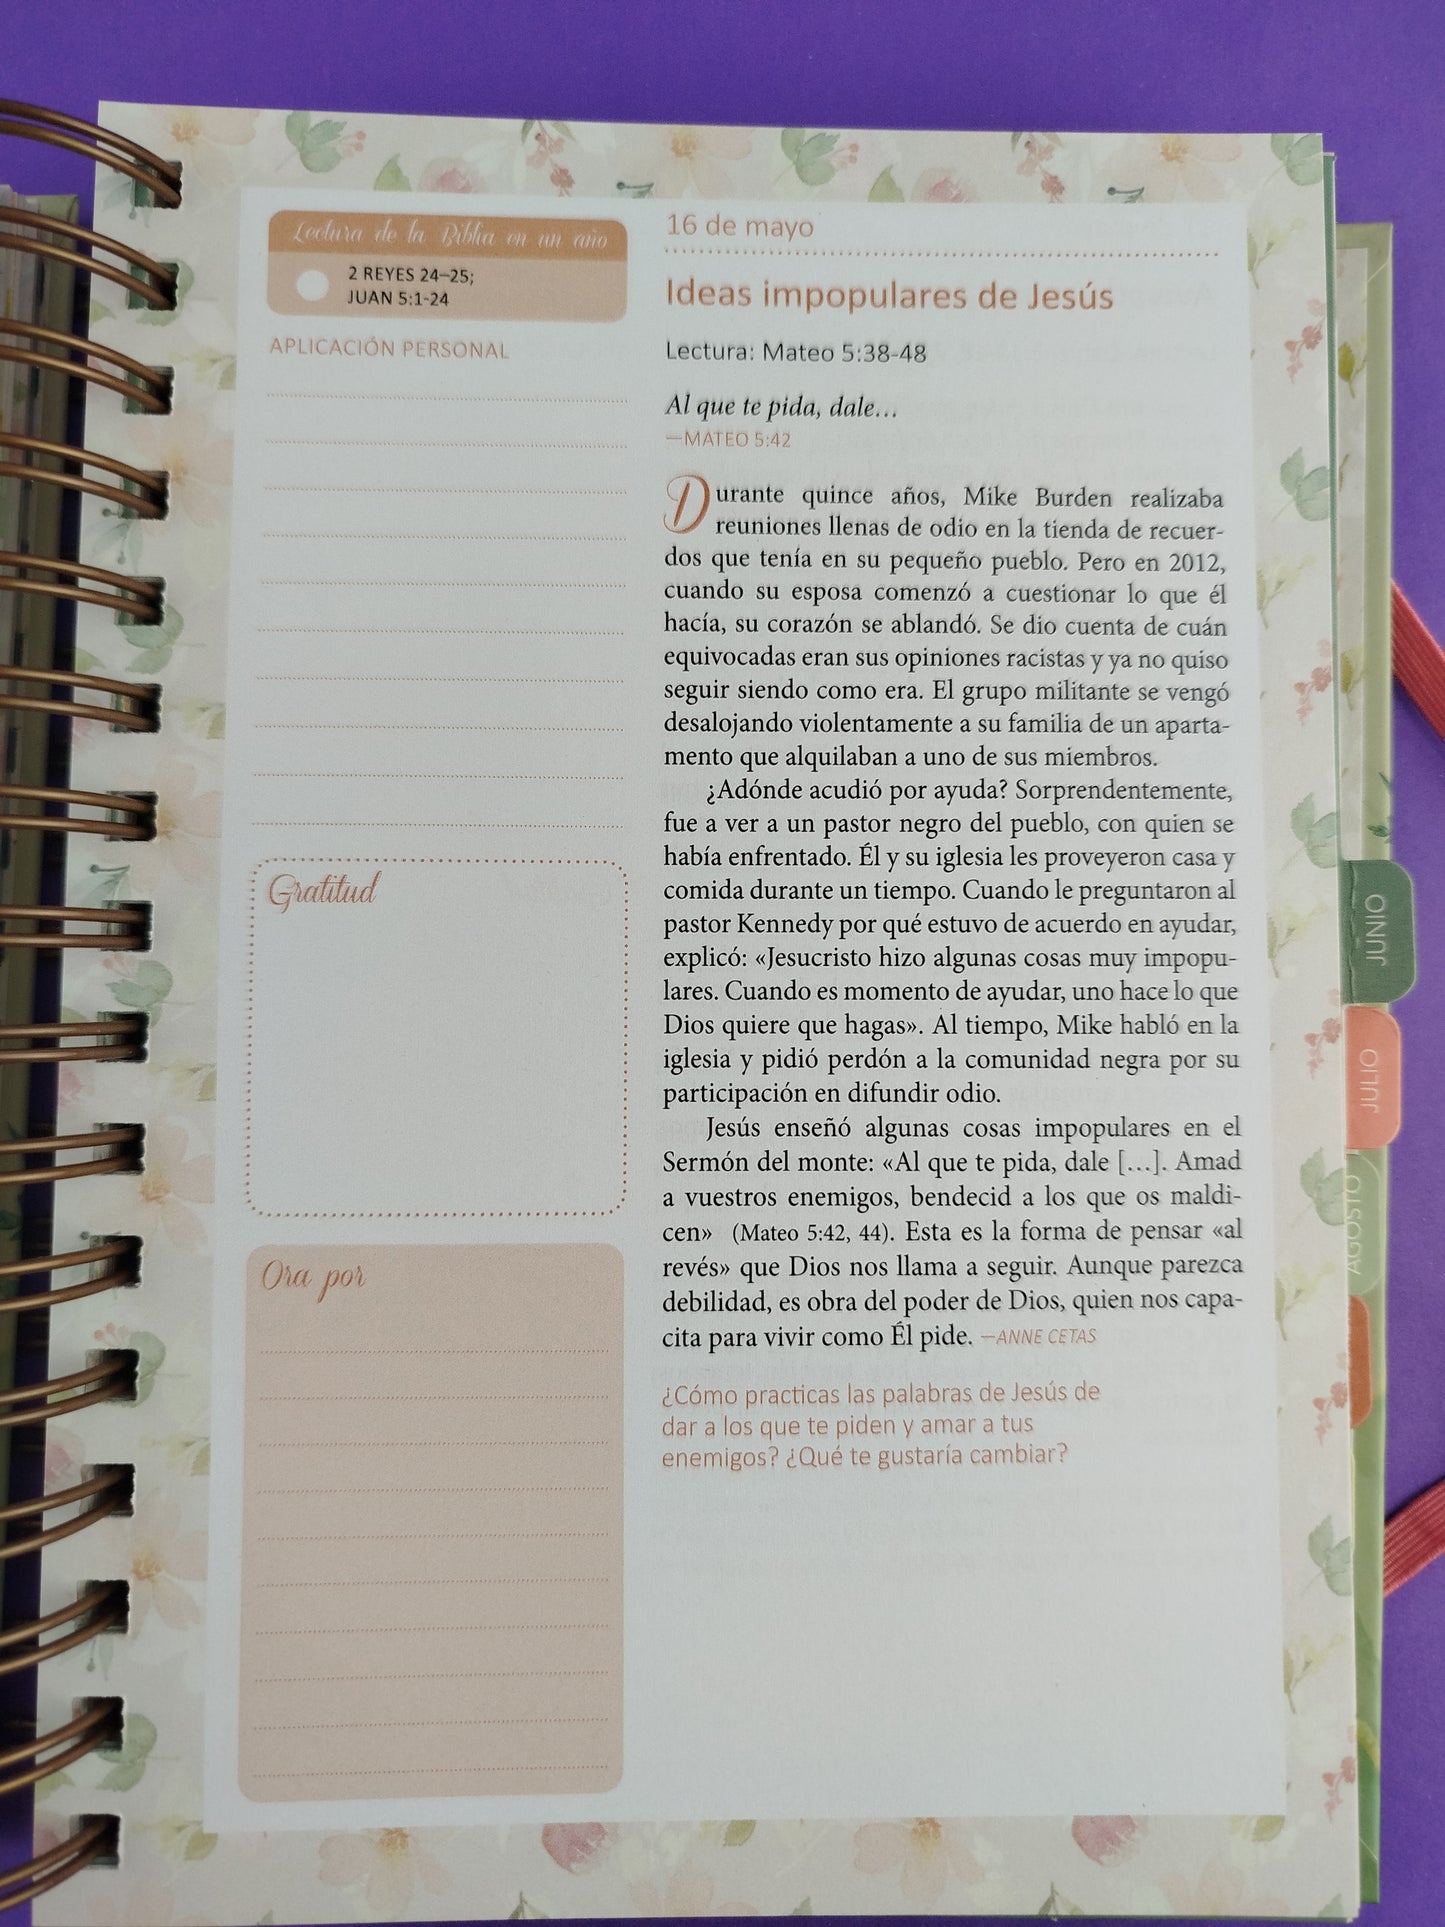 Lectura de la Biblia en un año
2 REYES 24–25;
JUAN 5:1-24
APLICACIÓN PERSONAL
Gratitud
Ora por
16 de mayo
Ideas impopulares de Jesús
Lectura: Mateo 5:38-48
Al que te pida, dale…
—MATEO 5:42
Durante quince años, Mike Burden realizaba
reuniones llenas de odio en la tienda de recuer-
dos que tenía en su pequeño pueblo. Pero en 2012,
cuando su esposa comenzó a cuestionar lo que él
hacía, su corazón se ablandó. Se dio cuenta de cuán
equivocadas eran sus opiniones racistas y ya no quiso
seguir siendo como era. El grupo militante se vengó
desalojando violentamente a su familia de un aparta-
mento que alquilaban a uno de sus miembros.
¿Adónde acudió por ayuda? Sorprendentemente,
fue a ver a un pastor negro del pueblo, con quien se
había enfrentado. Él y su iglesia les proveyeron casa y
comida durante un tiempo. Cuando le preguntaron al
pastor Kennedy por qué estuvo de acuerdo en ayudar,
explicó: «Jesucristo hizo algunas cosas muy impopu-
lares. Cuando es momento de ayudar, uno hace lo que
Dios quiere que hagas». Al tiempo, Mike habló en la
iglesia y pidió perdón a la comunidad negra por su
participación en difundir odio.
Jesús enseñó algunas cosas impopulares en el
Sermón del monte: «Al que te pida, dale […]. Amad
a vuestros enemigos, bendecid a los que os maldi-
cen» (Mateo 5:42, 44). Esta es la forma de pensar «al
revés» que Dios nos llama a seguir. Aunque parezca
debilidad, es obra del poder de Dios, quien nos capa-
cita para vivir como Él pide. —ANNE CETAS
¿Cómo practicas las palabras de Jesús de
dar a los que te piden y amar a tus
enemigos? ¿Qué te gustaría cambiar?
JUNIO
JULIO
AGOSTO